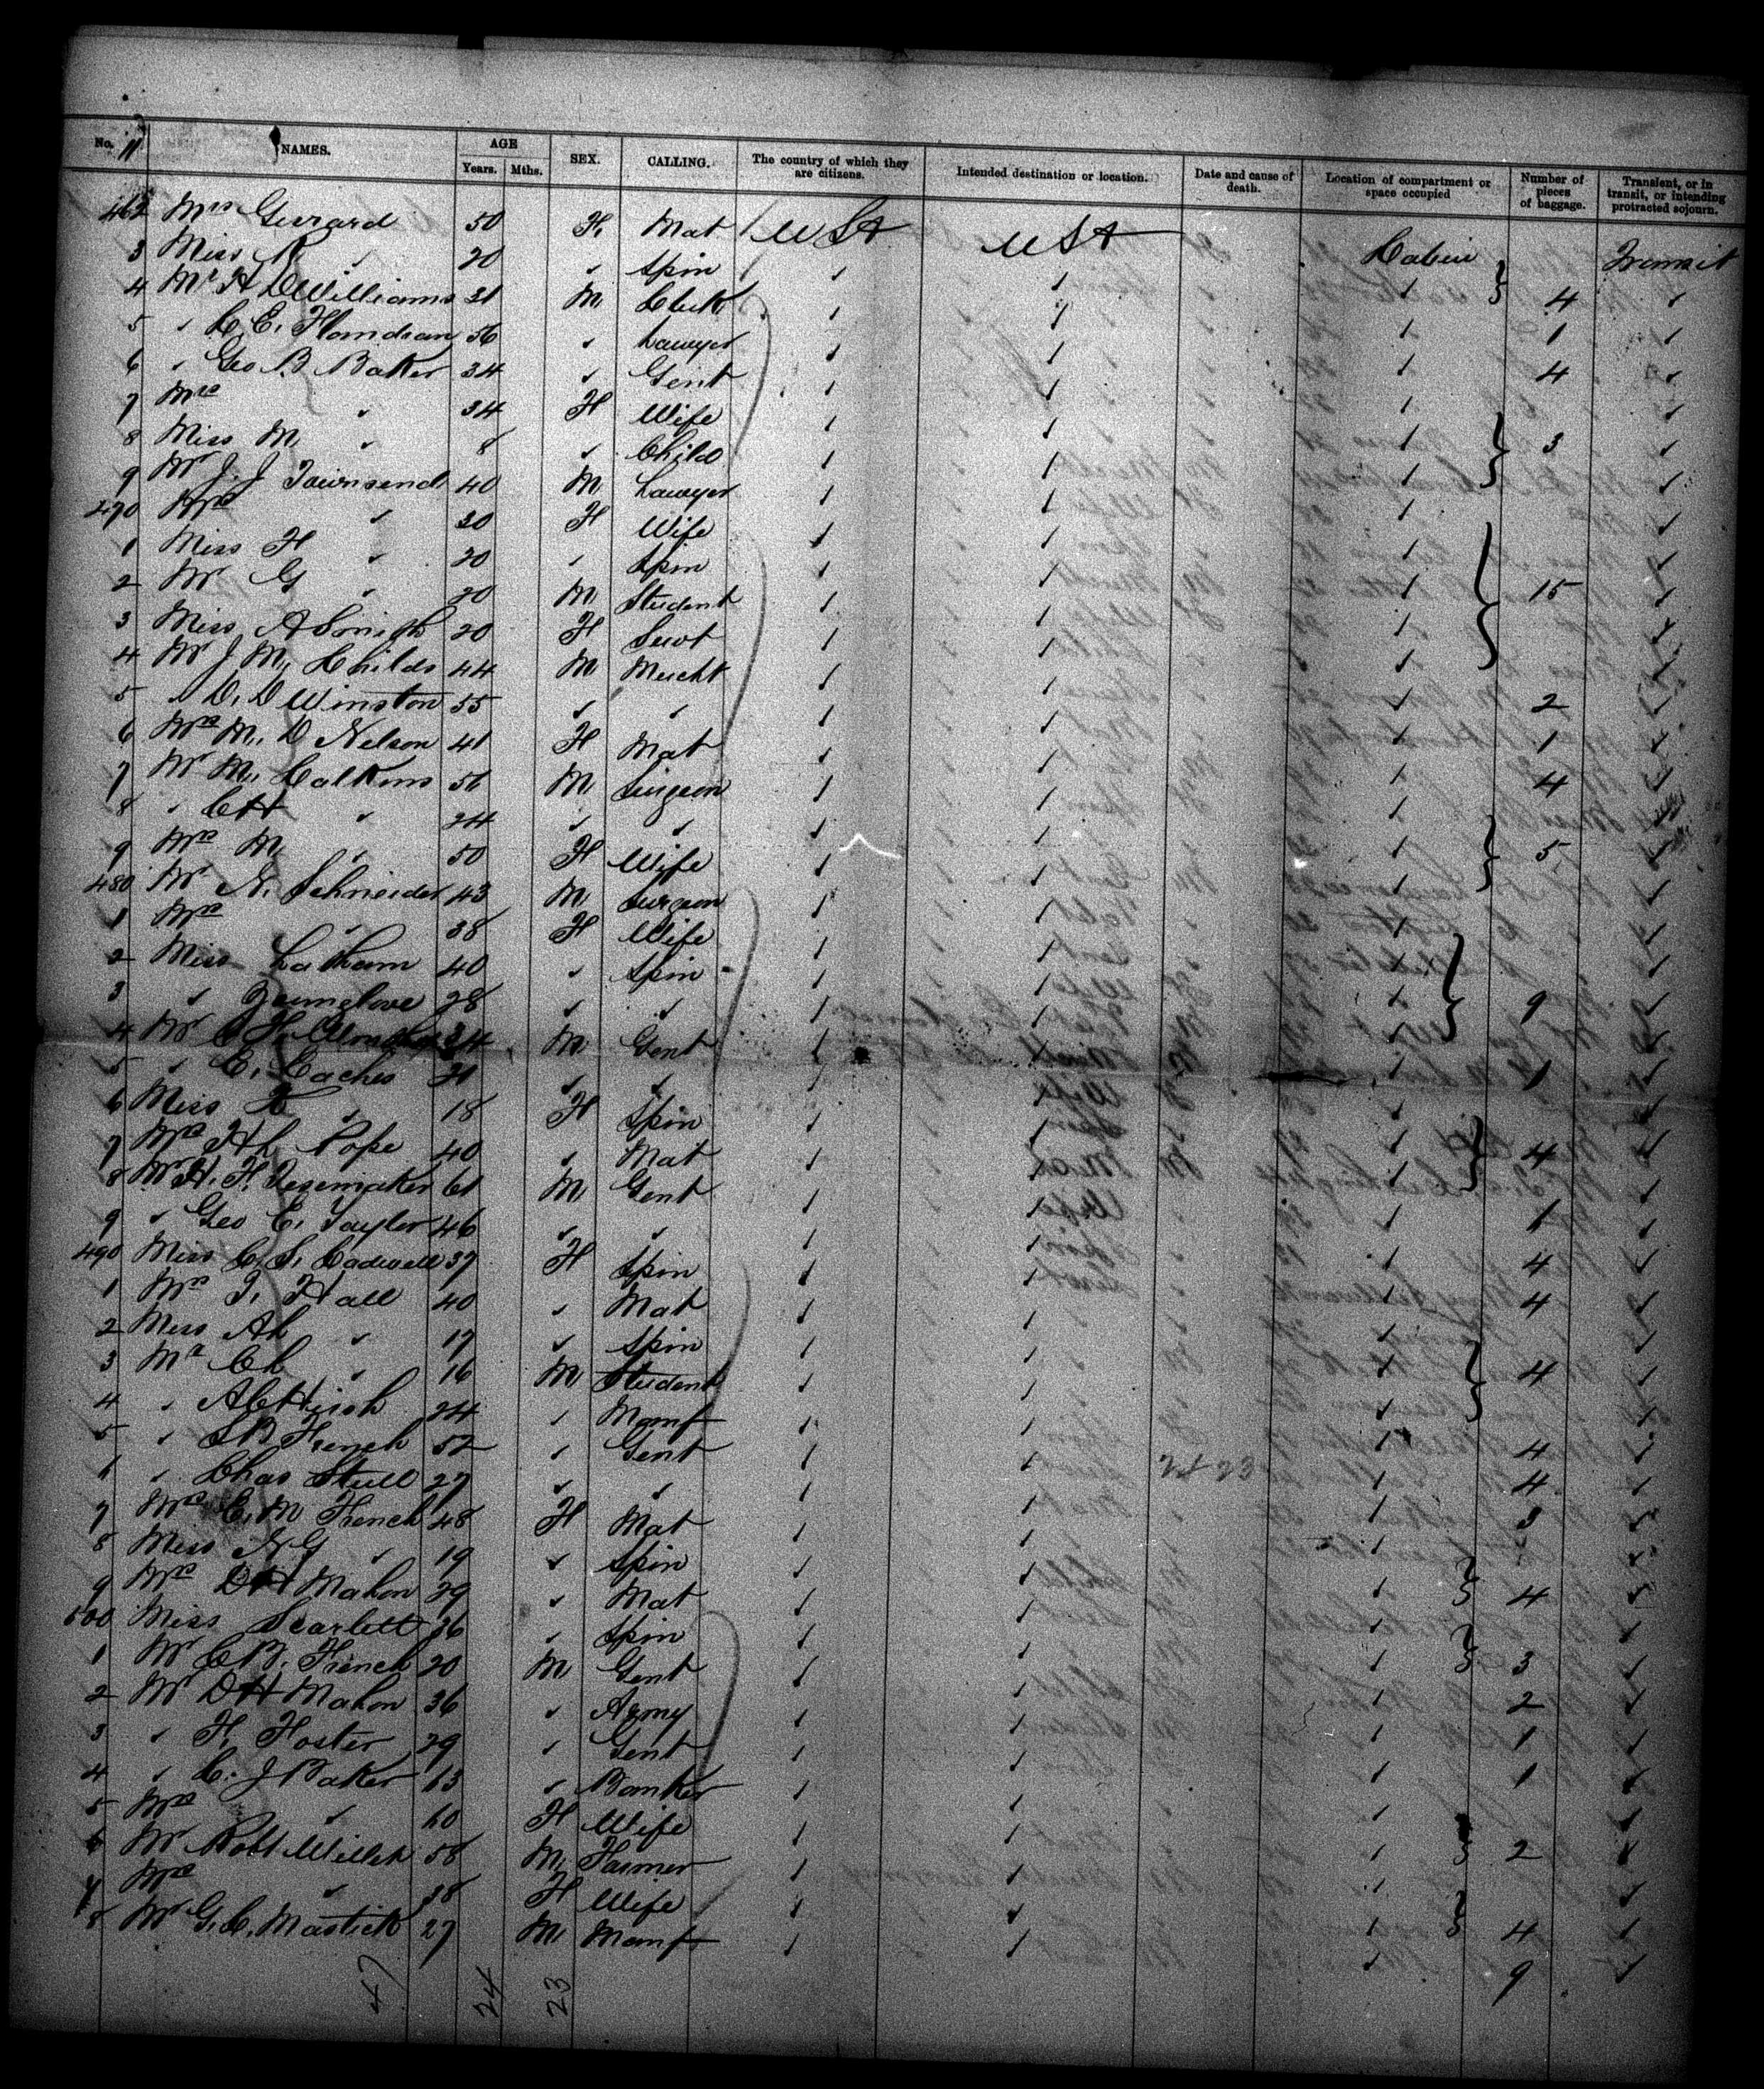 No. 11 NAMES. AGE Years. Mths. SEX. CALLING. The country of which they are citizens. Intended destination or location. Date and cause of death. Location of compartment or space occupied Number of pieces of baggage. Transient, or in transit, or intending protracted sojourn.
462 Mrs Gerrard 50 F. Mat U St U St Cabin Transit
3 Miss R " 20 " Spin 4
4 Mr H D Williams 31 M Clerk 1
5 " C. E. 56 " Lawyer 4
6 " Geo B Baker 34 " Gent
7 Mrs " 34 F Wife 3
8 Miss M " 8 " Child
9 Mr J. J Townsend 40 M Lawyer
470 Mrs " 30 F Wife
1 Miss F " 20 " Spin 15
2 Mr G " 20 M Student
3 Miss A Smith 20 F Servt
4 Mr J M. Childs 44 M Mercht 2
5 " D. D Winston 55 " " 1
6 Mrs M. D Nelson 41 F Mat 4
7 Mr M. Calkins 56 M Surgeon
8 " C H " 24 " " 5
9 Mrs M " 50 F Wife
480 Mr N. Schneider 43 M Surgeon
1 Mrs " 38 F Wife
2 Miss Latham 40 " Spin 9
3 " Younglove 28 " "
4 Mr 34 M Gent 1
5 " E. Caches 21 " "
6 Miss " 18 F Spin 4
7 Mrs H L Pope 40 " Mat
8 Mr H. F. Tesemaker 61 M Gent 1
9 " Geo E. Taylor 46 " " 4
490 Miss C. S. Cadwell 37 F Spin 4
1 Mrs T. Hall 40 " Mat
2 Miss A L " 17 " Spin 4
3 Mr C L " 16 M Student
4 " A C Hirsh 24 " Manf 4
5 " S B French 52 " Gent 24 23 4
6 " Chas Stull 27 " " 3
7 Mrs E. M French 48 F Mat
8 Miss N G " 19 " Spin 4
9 Mrs D H Mahon 29 " Mat
500 Miss Scarlett 36 " Spin 3
1 Mr C B. French 20 M Gent 2
2 Mr D H Mahon 36 " Army 1
3 " F. Foster 29 " Gent 1
4 " C. J Baker 63 " Banker
5 Mrs " 60 F Wife 2
6 Mr Robt Willets 58 M Farmer
7 Mrs " 38 F Wife 4
8 Mr G. C. Mastick 27 M Manf 9
47 24 23